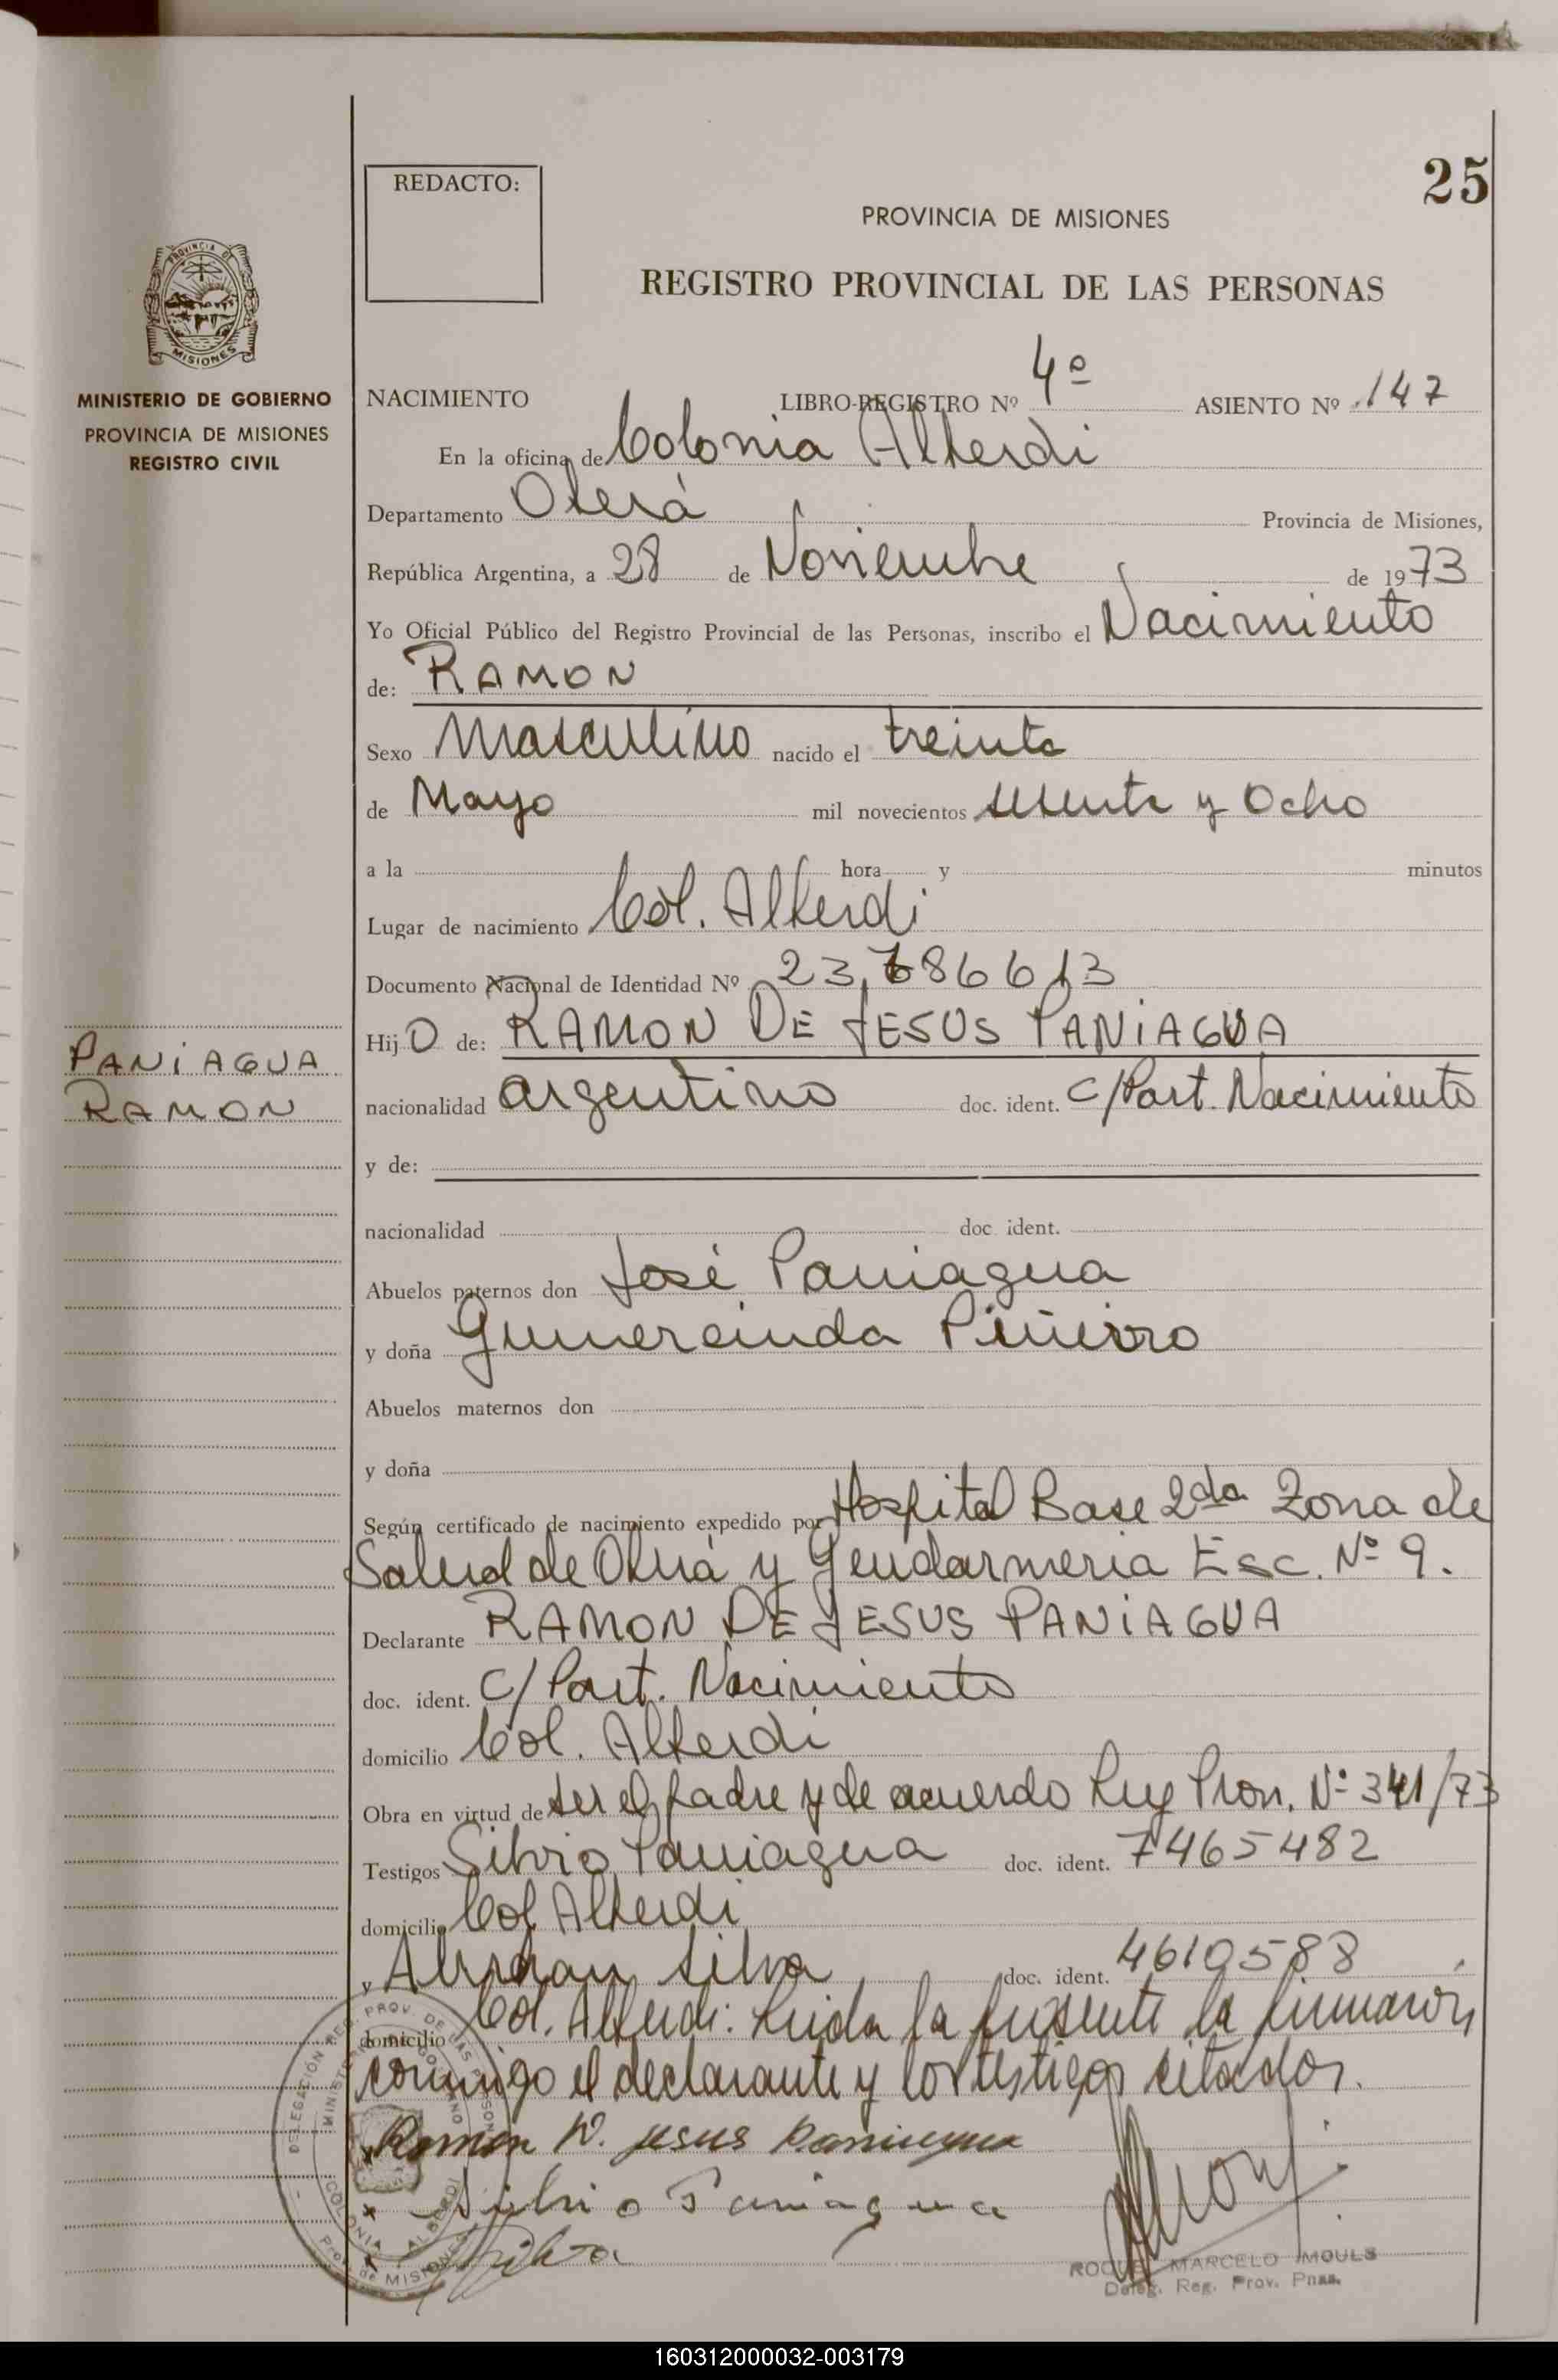 25
REDACTO:
PROVINCIA DE MISIONES
REGISTRO PROVINCIAL DE LAS PERSONAS
PROVINCIA DE
MISIONES
MINISTERIO DE GOBIERNO
PROVINCIA DE MISIONES
REGISTRO CIVIL
NACIMIENTO LIBRO-REGISTRO Nº 4º ASIENTO Nº 147
En la oficina de Colonia Alberdi
Departamento Oberá Provincia de Misiones,
República Argentina, a 28 de Noviembre de 1973
Yo Oficial Público del Registro Provincial de las Personas, inscribo el Nacimiento
de: RAMON
Sexo Masculino nacido el treinta
de Mayo mil novecientos sesenta y Ocho
a la hora y minutos
Lugar de nacimiento Col. Alberdi
Documento Nacional de Identidad Nº 23, 86613
Hijo de: RAMON DE JESUS PANIAGUA
PANIAGUA
RAMON
nacionalidad argentino doc. ident. C/Part. Nacimiento
y de:
nacionalidad doc. ident.
Abuelos paternos don José Paniagua
y doña Gumercinda Piñeiro
Abuelos maternos don
y doña
Según certificado de nacimiento expedido por Hospital Base 2da Zona de
Salud de Oberá y Gendarmeria Esc. Nº 9.
Declarante RAMON DE JESUS PANIAGUA
doc. ident. C/ Part. Nacimiento
domicilio Col. Alberdi
Obra en virtud de ser el padre y de acuerdo Ley Prov. Nº 341/73
Testigos Silvio Paniagua doc. ident. 7465482
domicilio Col Alberdi
y Abrahan Silva doc. ident. 4610588
domicilio Col. Alberdi: Leida la presente la firmaron
conmigo el declarante y los testigos citados.
Ramon D. Jesus Paniagua
Silvio Paniagua
Silva
DELEGACIÓN REG. PROV. DE LAS PERSONAS
COLONIA ALBERDI
Prov. de MISIONES
ROQUE MARCELO MOULS
Deleg. Reg. Prov. Pnas.
160312000032-003179